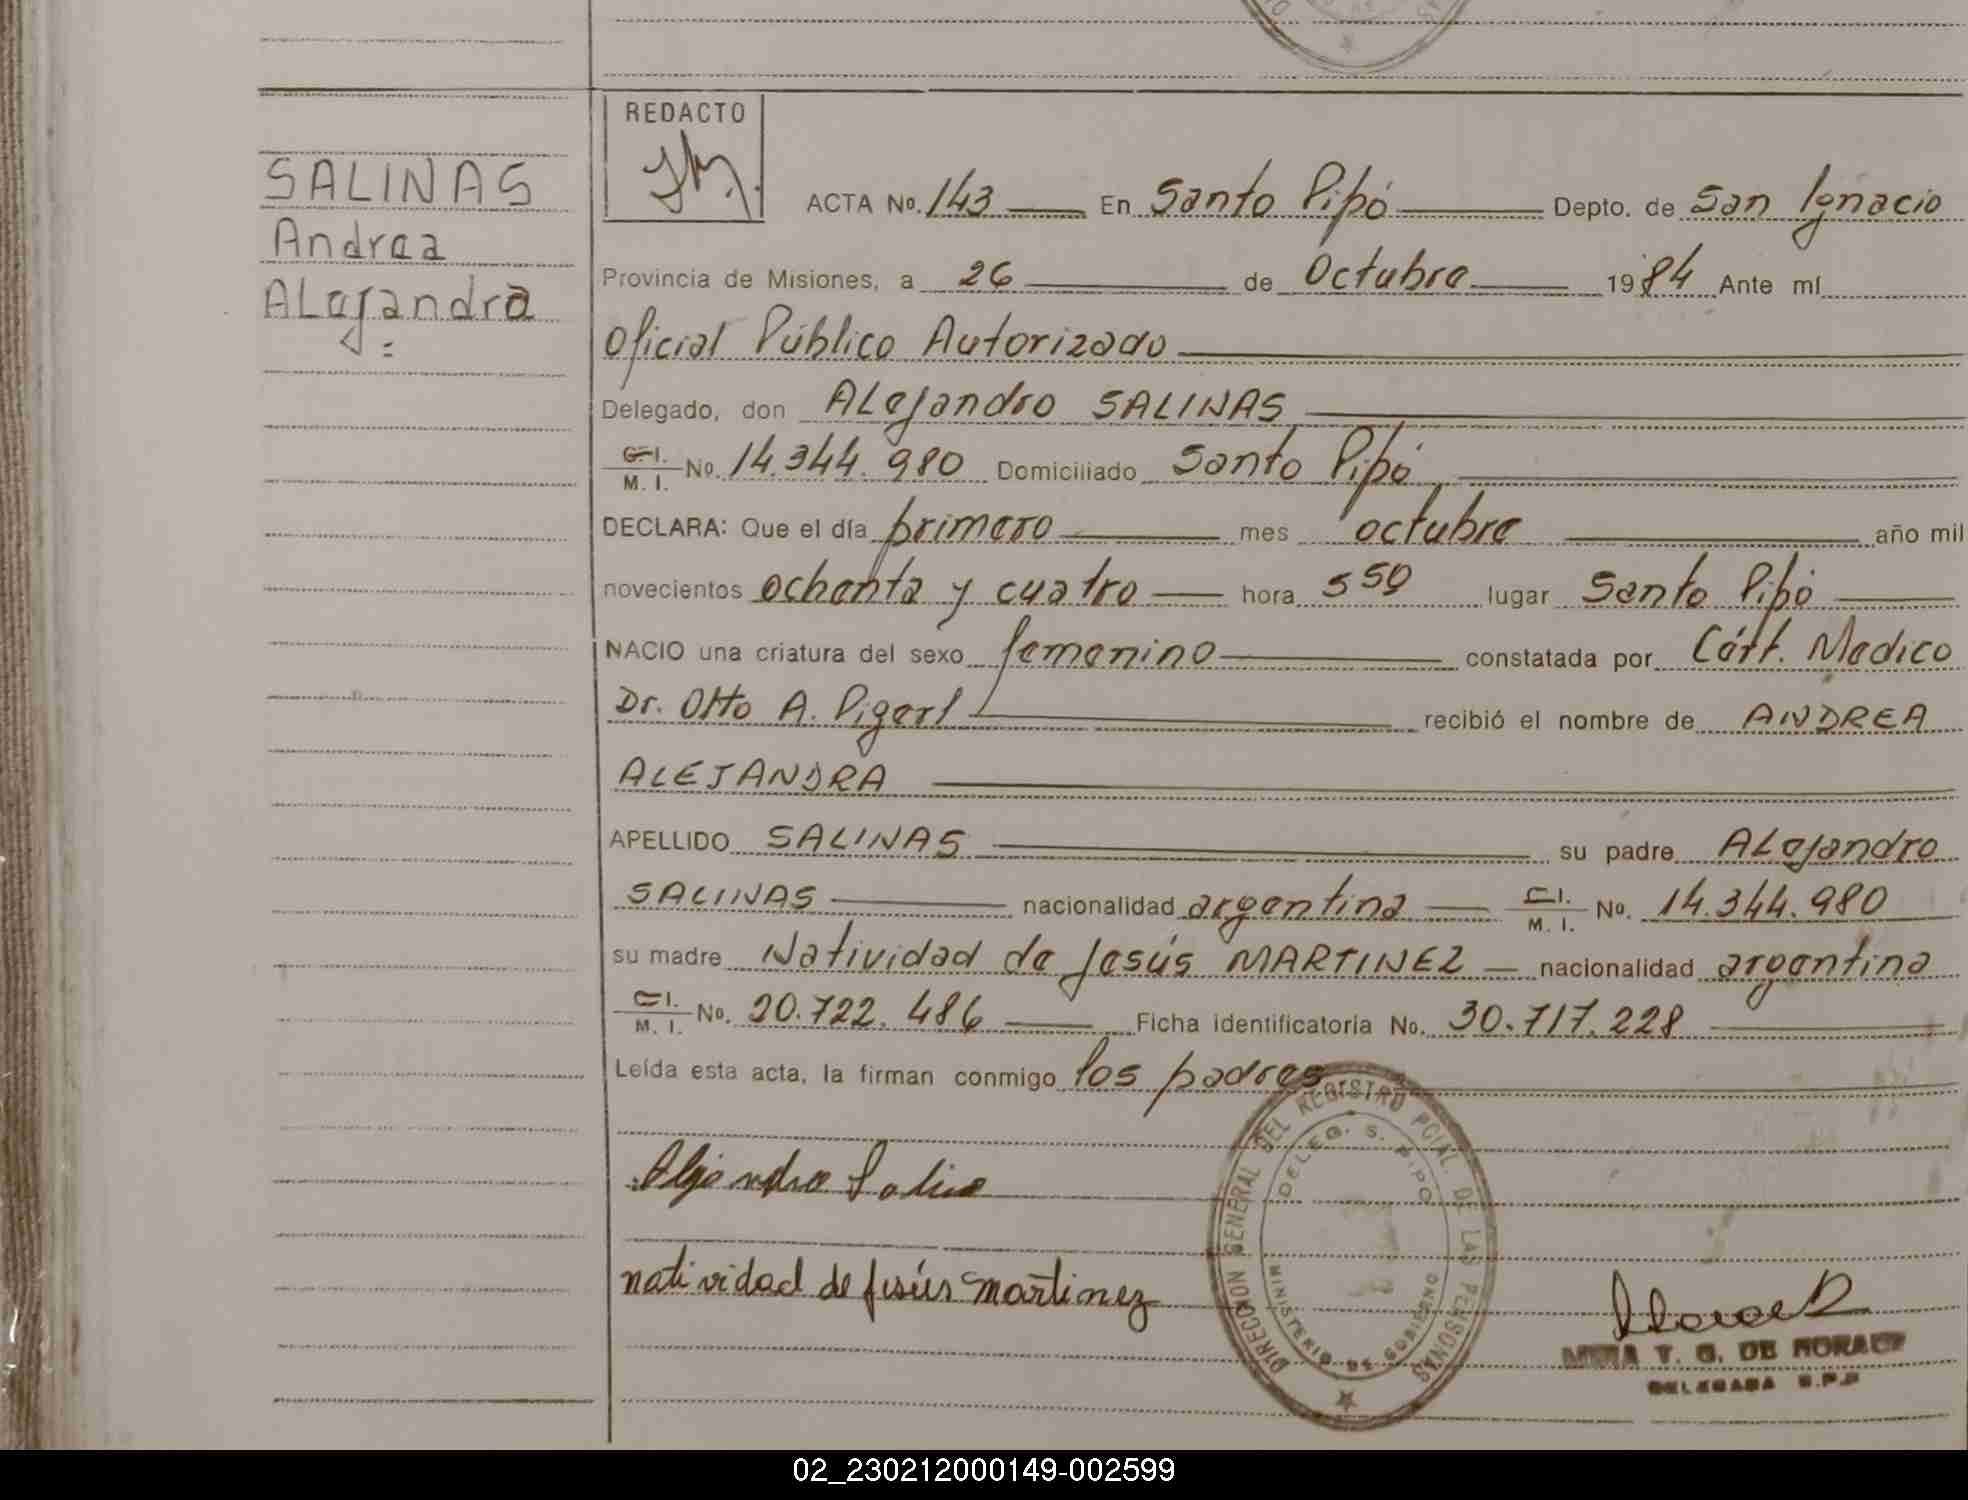 SALINAS
Andrea
ALejandra
REDACTO
ACTA No. 143 En Santo Pipó Depto. de San Ignacio
Provincia de Misiones, a 26 de Octubre 1984 Ante mí
Oficial Público Autorizado
Delegado, don ALejandro SALINAS
C.I. M. I. No. 14.344.980 Domiciliado Santo Pipó
DECLARA: Que el día primero mes octubre año mil
novecientos ochenta y cuatro hora 5 50 lugar Santo Pipó
NACIO una criatura del sexo femenino constatada por Cért. Medico
Dr. Otto A. Pigerl recibió el nombre de ANDREA
ALEJANDRA
APELLIDO SALINAS su padre ALejandro
SALINAS nacionalidad argentina C.I. M. I. No. 14.344.980
su madre Natividad de Jesús MARTINEZ nacionalidad argentina
C.I. M. I. No. 20.722.486 Ficha identificatoria No. 30.717.228
Leída esta acta, la firman conmigo los padres
DIRECCION GENERAL DEL REGISTRO PCIAL. DE LAS PERSONAS
DELEG. S. PIPO
MINISTERIO DE GOBIERNO
natividad de Jesús martinez
T. G. DE
DELEGADA S.P.P
02_230212000149-002599